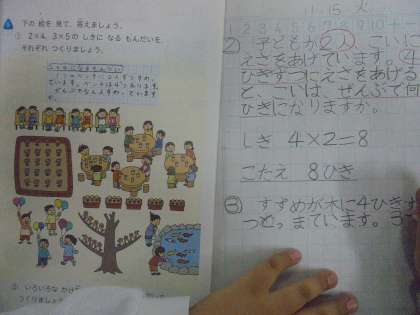 下の 絵を 見て、答えましょう。
① 2×4、3×5の しきに なる もんだいを、
それぞれ つくりましょう。
② いろいろな
つくりましょう
11-15 火
2 3 4 5 6 7 8 9 10
② 子どもが2人、こいに
えさをあげています。4
ひきずつにえさをあげる
と、こいは、ぜんぶで何
ひきになりますか。
しき 4×2=8
こたえ 8ひき
③ すずめが木に4ひきず
つとまっています。3